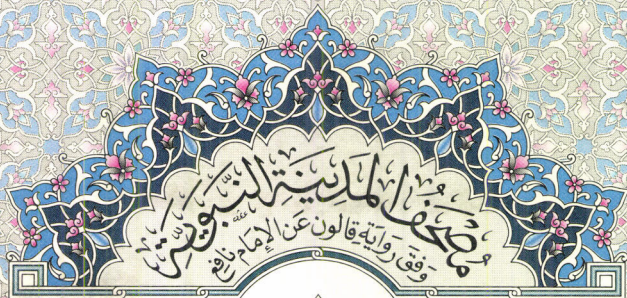 مُصْحَفُ الْمَدِينَةِ النَّبَوِيَّةِ
وَفْقَ رِوَايَةِ قَالُون عَنِ الْإِمَامِ نَافِع